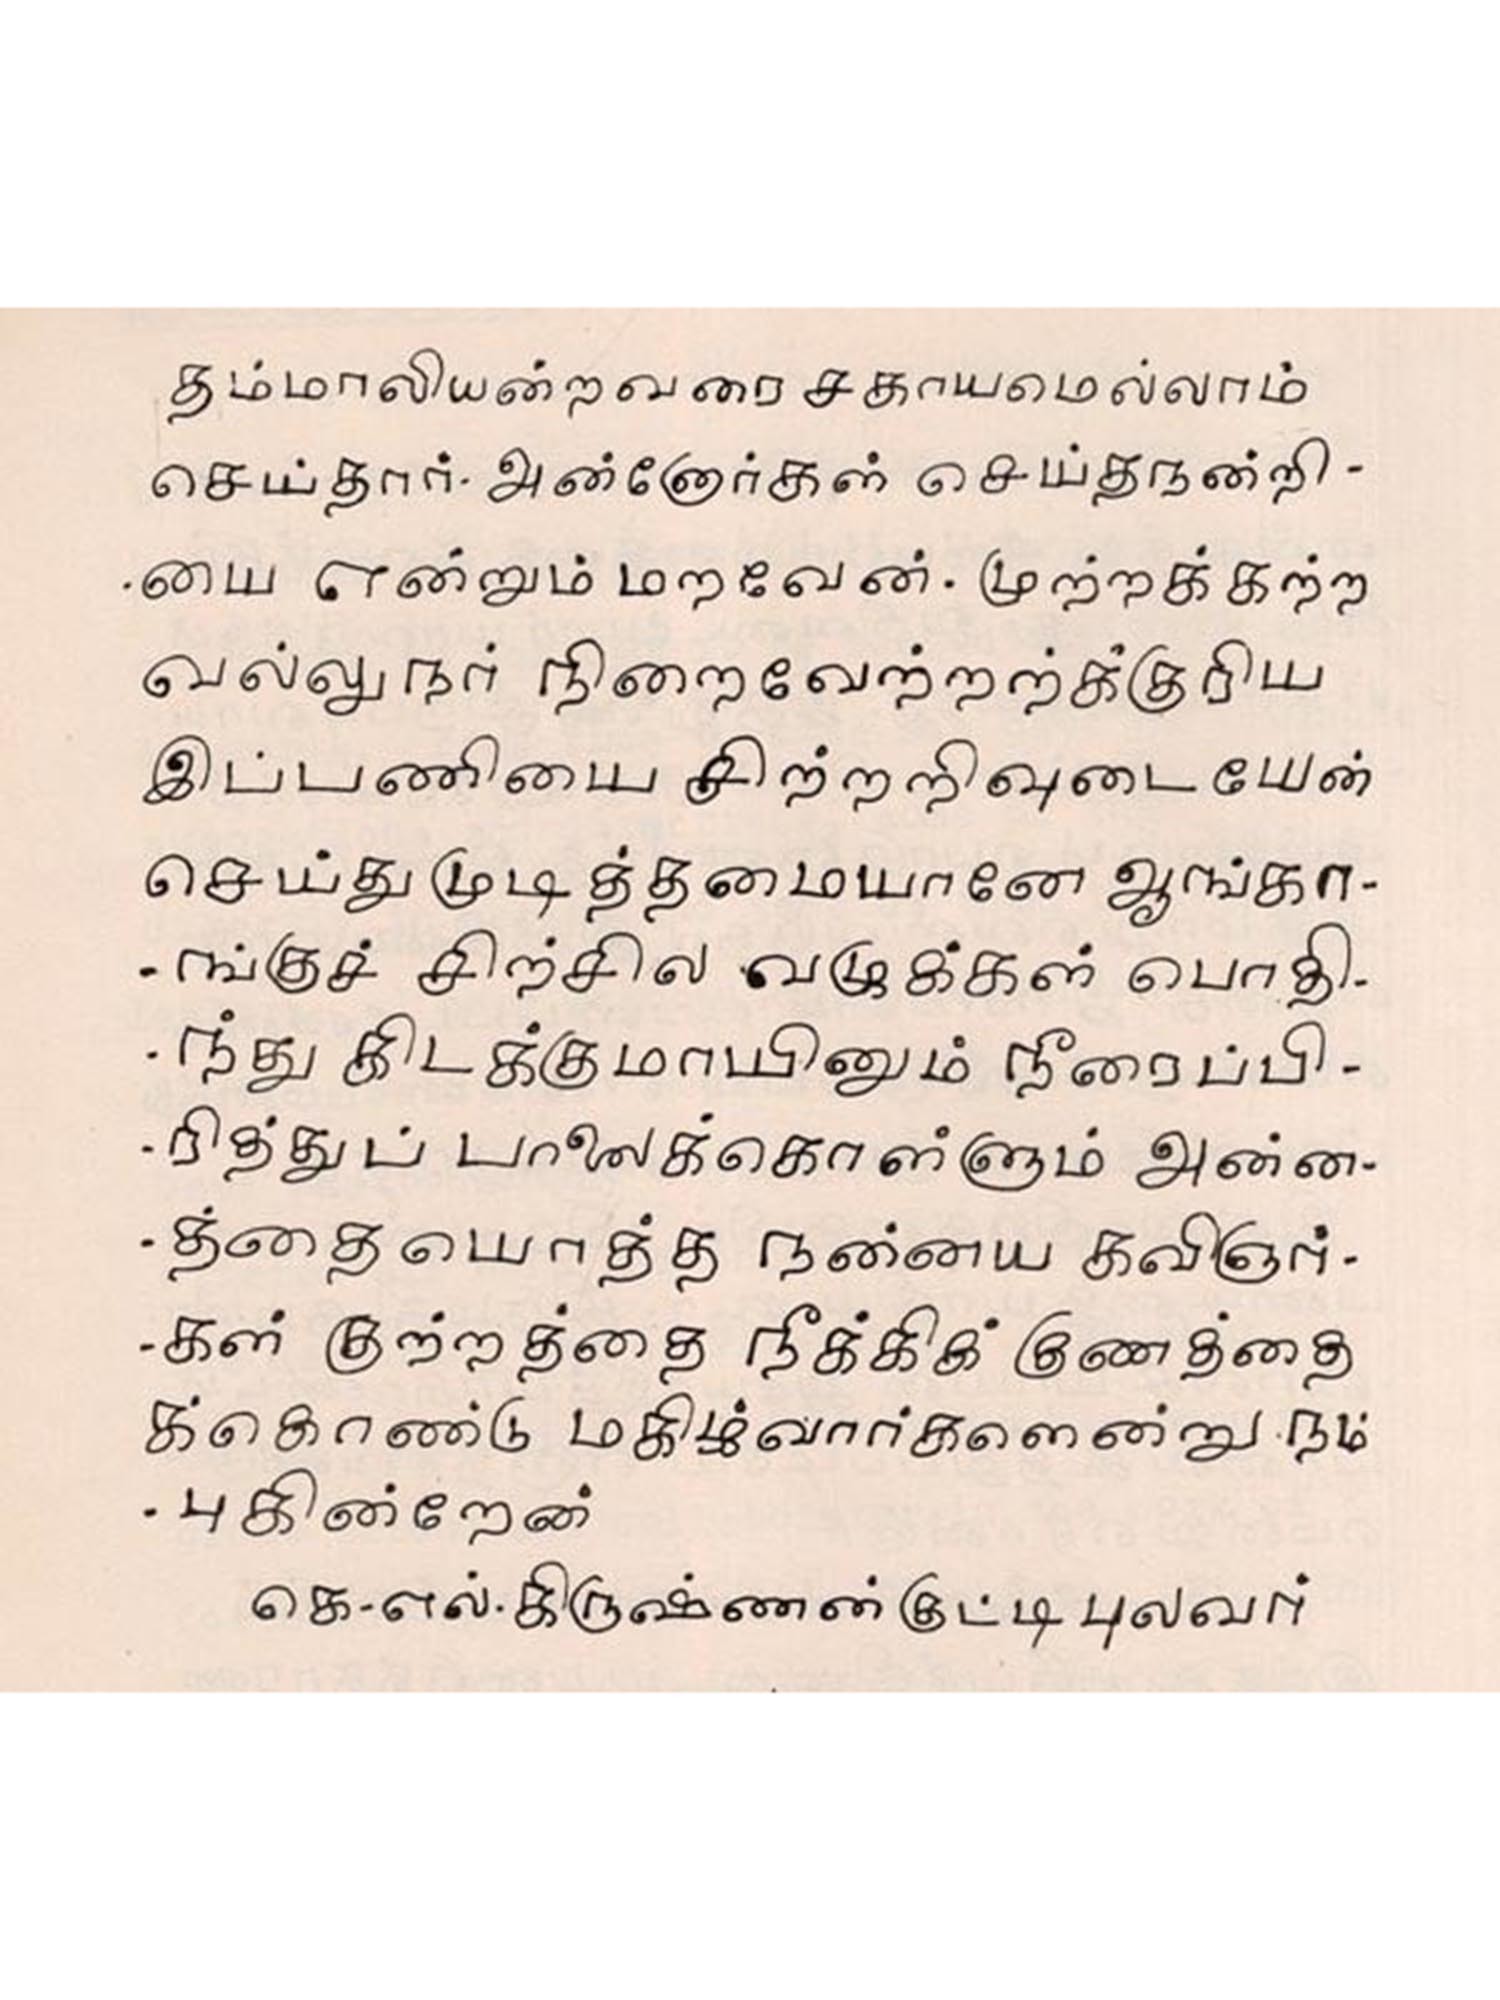 தம்மாலியன்றவரை சகாயமெல்லாம்
செய்தார். அன்னோர்கள் செய்தநன்றி-
-யை என்றும் மறவேன். முற்றக்கற்ற
வல்லுநர் நிறைவேற்றற்க்குரிய
இப்பணியை சிற்றறிவுடையேன்
செய்து முடித்தமையானே ஆங்கா-
-ங்குச் சிற்சில வழுக்கள் பொதி-
-ந்து கிடக்குமாயினும் நீரைப்பி-
-ரித்துப் பாலைக்கொள்ளும் அன்ன-
-த்தையொத்த நன்னய கவிஞர்-
-கள் குற்றத்தை நீக்கிக் குணத்தை
க்கொண்டு மகிழ்வார்களென்று நம்
-புகின்றேன்
கெ-எல்.கிருஷ்ணன்குட்டி புலவர்